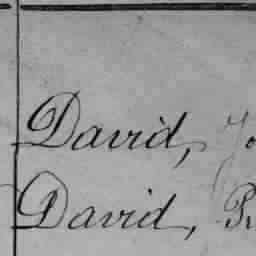 David,
David,